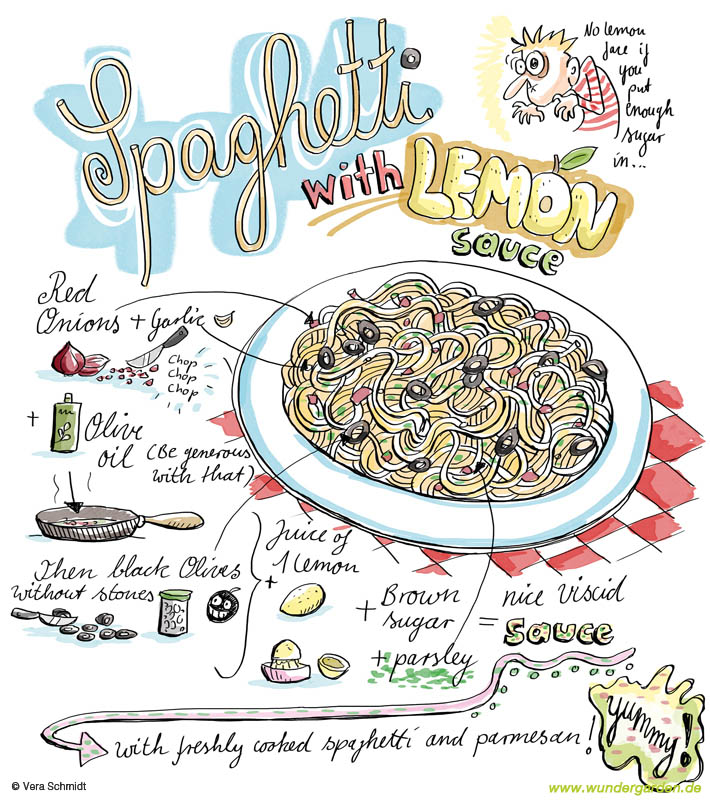 Spaghetti
with LEMON
sauce
No lemon
face if
you
put
enough
sugar
in...
Red
Onions + Garlic
Chop
Chop
Chop
+ Olive
oil (Be generous
with that)
Then black Olives
without stones
Juice of
1 lemon
+
+ Brown
sugar
+ parsley
= nice viscid
sauce
with freshly cooked spaghetti and parmesan!
yummy!
© Vera Schmidt
www.wundergarden.de